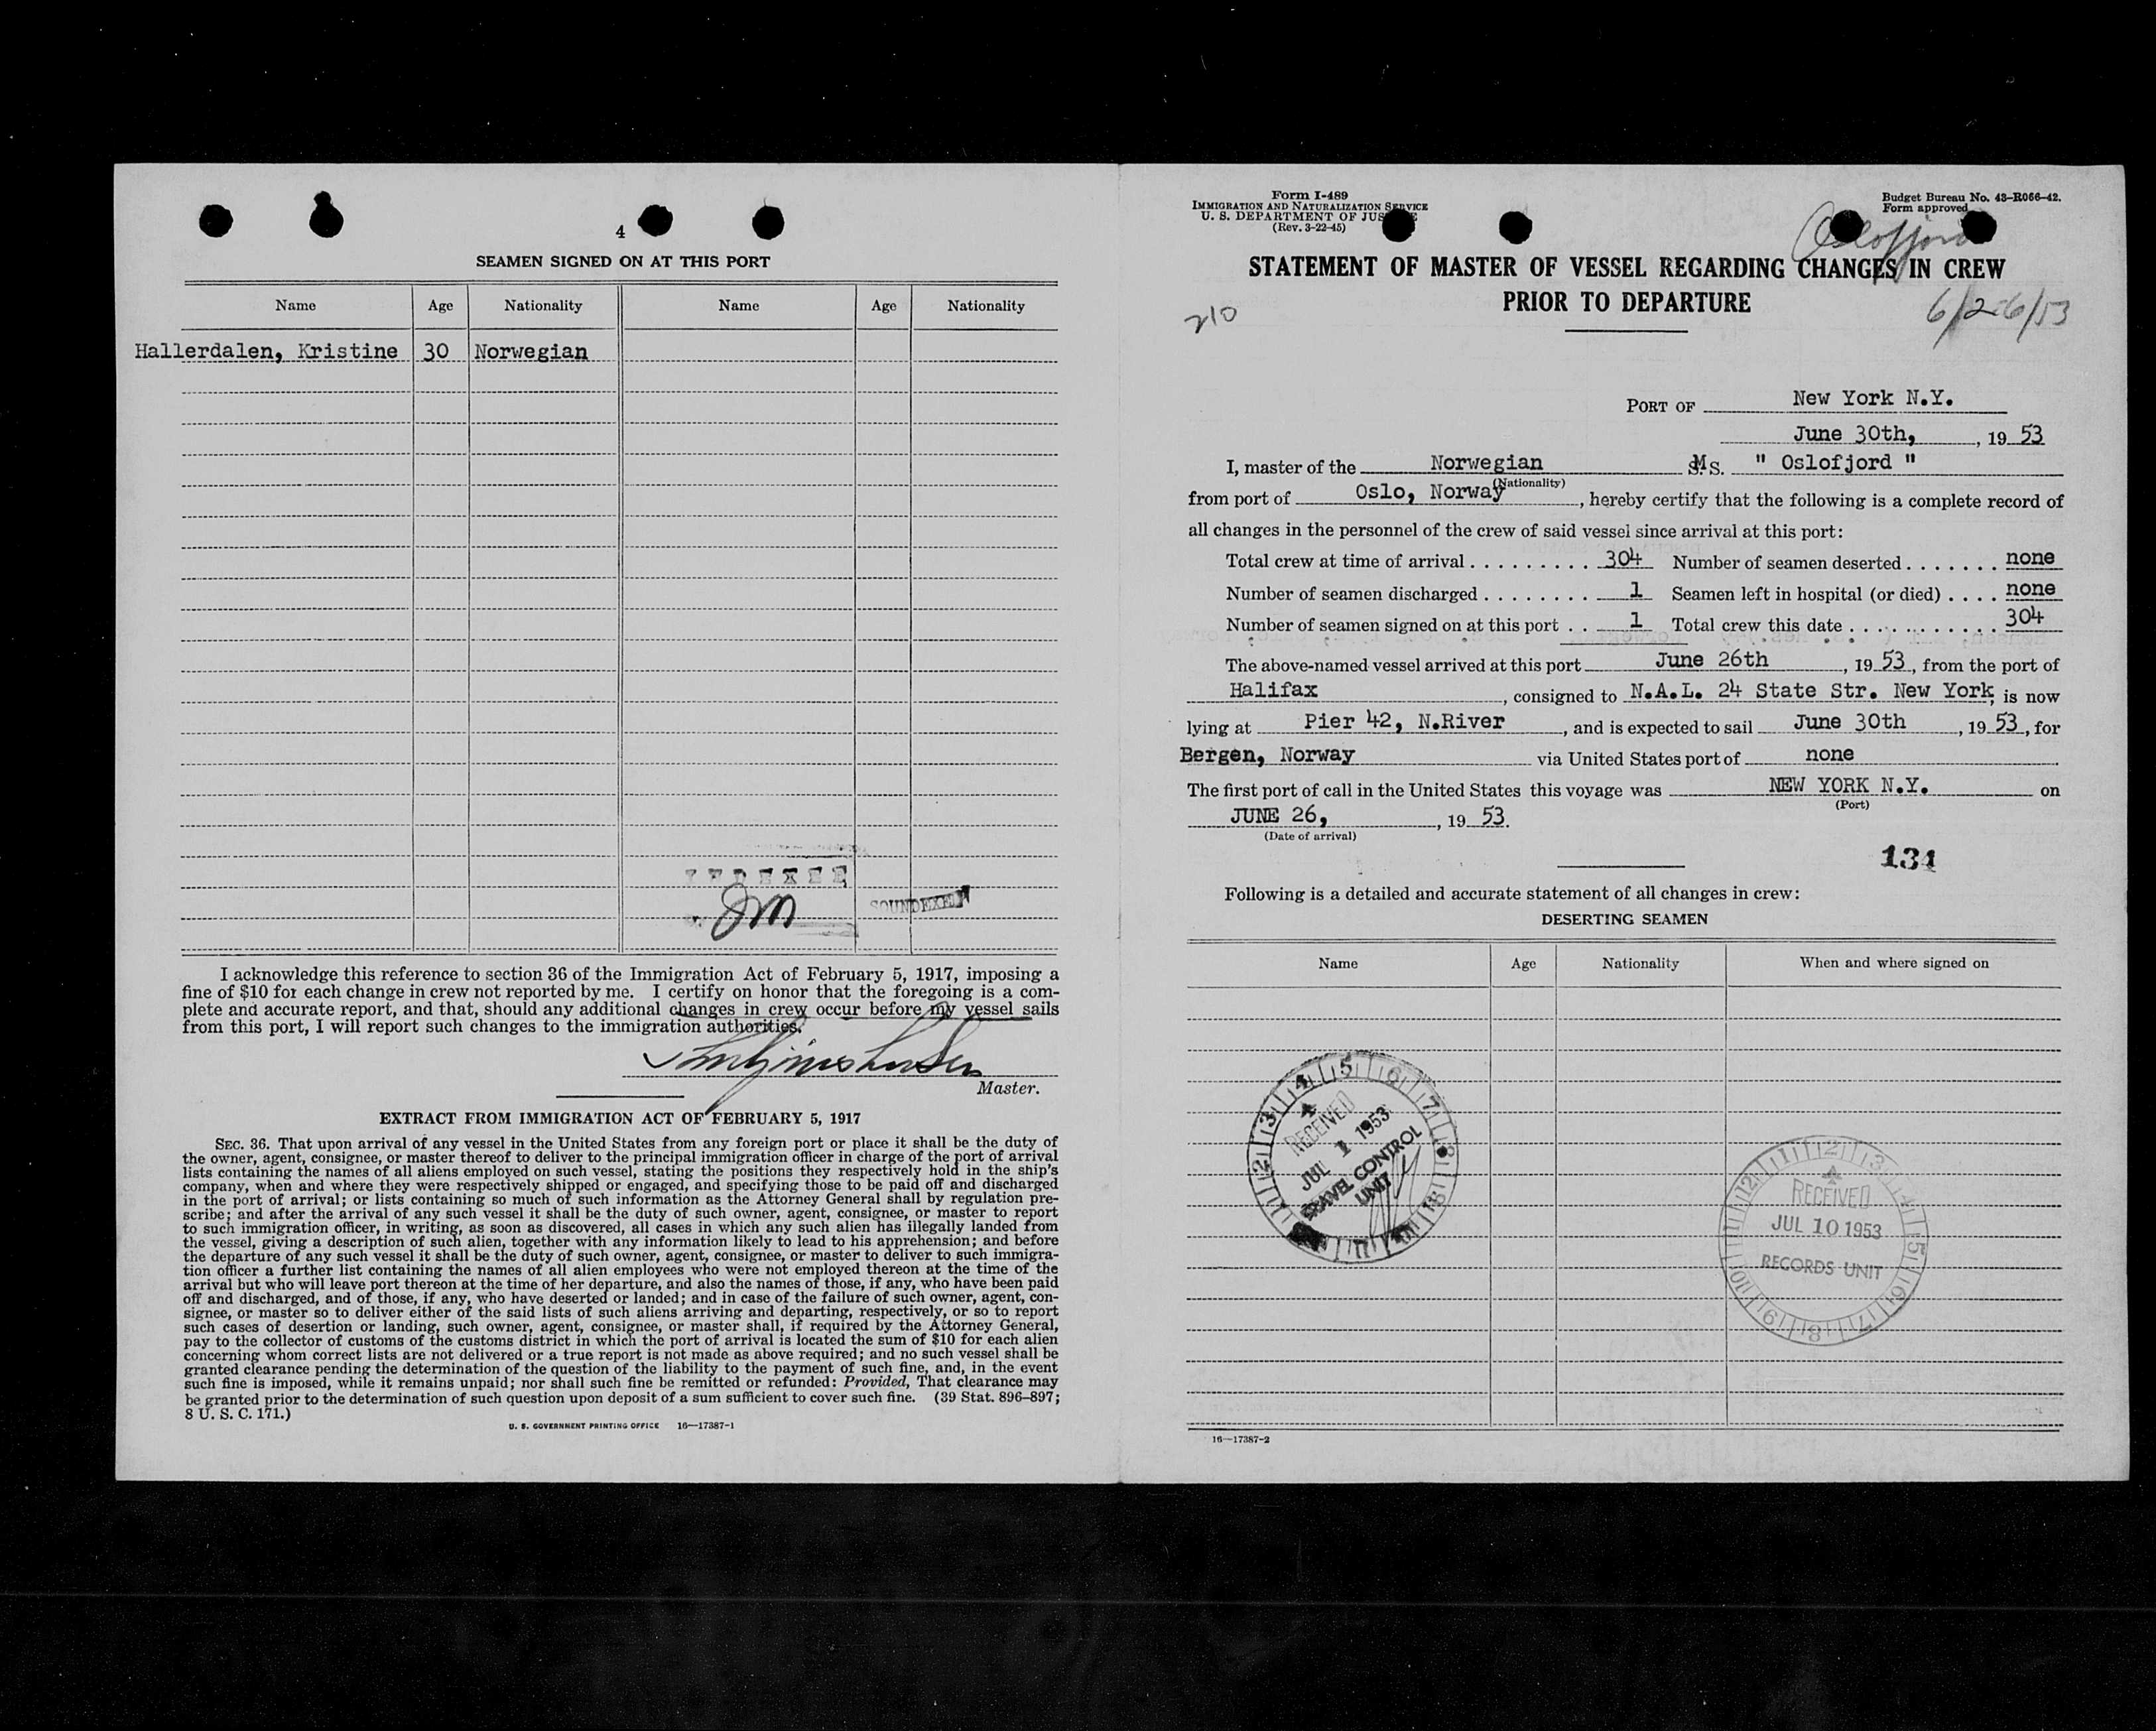 4
SEAMEN SIGNED ON AT THIS PORT
Name Age Nationality Name Age Nationality
Hallerdalen, Kristine 30 Norwegian
SOUNDEXED
I acknowledge this reference to section 36 of the Immigration Act of February 5, 1917, imposing a
fine of $10 for each change in crew not reported by me. I certify on honor that the foregoing is a com-
plete and accurate report, and that, should any additional changes in crew occur before my vessel sails
from this port, I will report such changes to the immigration authorities.
Master.
EXTRACT FROM IMMIGRATION ACT OF FEBRUARY 5, 1917
SEC. 36. That upon arrival of any vessel in the United States from any foreign port or place it shall be the duty of
the owner, agent, consignee, or master thereof to deliver to the principal immigration officer in charge of the port of arrival
lists containing the names of all aliens employed on such vessel, stating the positions they respectively hold in the ship's
company, when and where they were respectively shipped or engaged, and specifying those to be paid off and discharged
in the port of arrival; or lists containing so much of such information as the Attorney General shall by regulation pre-
scribe; and after the arrival of any such vessel it shall be the duty of such owner, agent, consignee, or master to report
to such immigration officer, in writing, as soon as discovered, all cases in which any such alien has illegally landed from
the vessel, giving a description of such alien, together with any information likely to lead to his apprehension; and before
the departure of any such vessel it shall be the duty of such owner, agent, consignee, or master to deliver to such immigra-
tion officer a further list containing the names of all alien employees who were not employed thereon at the time of the
arrival but who will leave port thereon at the time of her departure, and also the names of those, if any, who have been paid
off and discharged, and of those, if any, who have deserted or landed; and in case of the failure of such owner, agent, con-
signee, or master so to deliver either of the said lists of such aliens arriving and departing, respectively, or so to report
such cases of desertion or landing, such owner, agent, consignee, or master shall, if required by the Attorney General,
pay to the collector of customs of the customs district in which the port of arrival is located the sum of $10 for each alien
concerning whom correct lists are not delivered or a true report is not made as above required; and no such vessel shall be
granted clearance pending the determination of the question of the liability to the payment of such fine, and, in the event
such fine is imposed, while it remains unpaid; nor shall such fine be remitted or refunded: Provided, That clearance may
be granted prior to the determination of such question upon deposit of a sum sufficient to cover such fine. (39 Stat. 896–897;
8 U. S. C. 171.)
U. S. GOVERNMENT PRINTING OFFICE 16—17387-1
Form I-489
IMMIGRATION AND NATURALIZATION SERVICE
U. S. DEPARTMENT OF JUSTICE
(Rev. 3-22-45)
Budget Bureau No. 43-R066-42.
Form approved
Oslofjord
STATEMENT OF MASTER OF VESSEL REGARDING CHANGES IN CREW
PRIOR TO DEPARTURE
210
6/26/53
PORT OF New York N.Y.
June 30th, , 19 53
I, master of the Norwegian M S. " Oslofjord "
(Nationality)
from port of Oslo, Norway , hereby certify that the following is a complete record of
all changes in the personnel of the crew of said vessel since arrival at this port:
Total crew at time of arrival . . . . . . . . . . 304 Number of seamen deserted . . . . . . . none
Number of seamen discharged . . . . . . . . 1 Seamen left in hospital (or died) . . . . none
Number of seamen signed on at this port . . 1 Total crew this date . . . . . . . . . . . . 304
The above-named vessel arrived at this port June 26th , 19 53, from the port of
Halifax , consigned to N.A.L. 24 State Str. New York, is now
lying at Pier 42, N.River , and is expected to sail June 30th , 19 53, for
Bergen, Norway via United States port of none
The first port of call in the United States this voyage was NEW YORK N.Y. on
(Port)
JUNE 26, , 19 53.
(Date of arrival)
131
Following is a detailed and accurate statement of all changes in crew:
DESERTING SEAMEN
Name Age Nationality When and where signed on
RECEIVED
JUL 1 1953
TRAVEL CONTROL
UNIT
RECEIVED
JUL 10 1953
RECORDS UNIT
16—17387-2